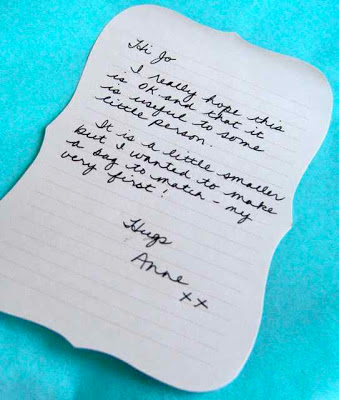 Hi Jo
I really hope this
is OK and that it
is useful to some
little person.
It is a little smaller
but I wanted to make
a bag to match - my
very first!
Hugs
Anne
xx